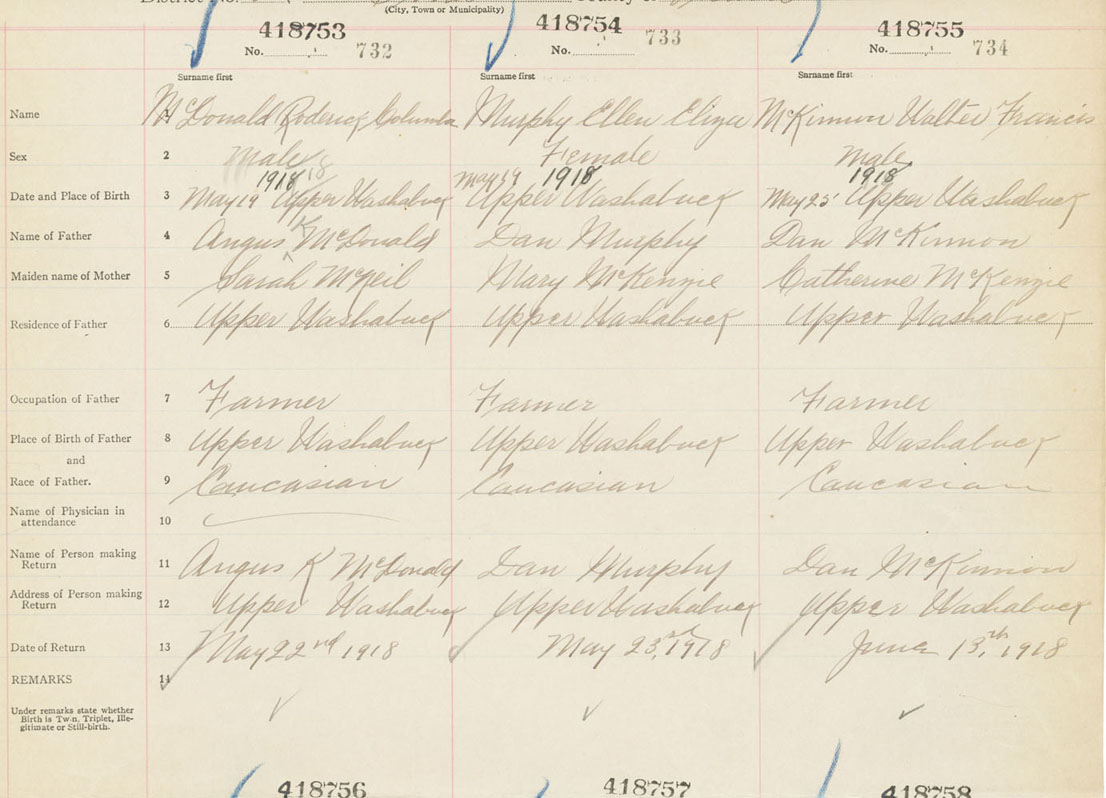 District No.
(City, Town or Municipality)
418753 418754 418755
No. 732 No. 733 No. 734
Surname first Surname first Surname first
Name 1 McDonald Roderick Columba Murphy Ellen Eliza McKinnon Walter Francis
Sex 2 Male Female Male
1918 May 19 1918 1918
Date and Place of Birth 3 May 19 Upper Washabuck Upper Washabuck May 25 Upper Washabuck
Name of Father 4 Angus K McDonald Dan Murphy Dan McKinnon
Maiden name of Mother 5 Sarah McNeil Mary McKenzie Catherine McKenzie
Residence of Father 6 Upper Washabuck Upper Washabuck Upper Washabuck
Occupation of Father 7 Farmer Farmer Farmer
Place of Birth of Father 8 Upper Washabuck Upper Washabuck Upper Washabuck
and
Race of Father. 9 Caucasian Caucasian Caucasian
Name of Physician in
attendance 10
Name of Person making
Return 11 Angus K McDonald Dan Murphy Dan McKinnon
Address of Person making
Return 12 Upper Washabuck Upper Washabuck Upper Washabuck
Date of Return 13 May 22nd 1918 May 23rd, 1918 June 13th, 1918
REMARKS 14
Under remarks state whether
Birth is Twin, Triplet, Ille-
gitimate or Still-birth.
418756 418757 418758